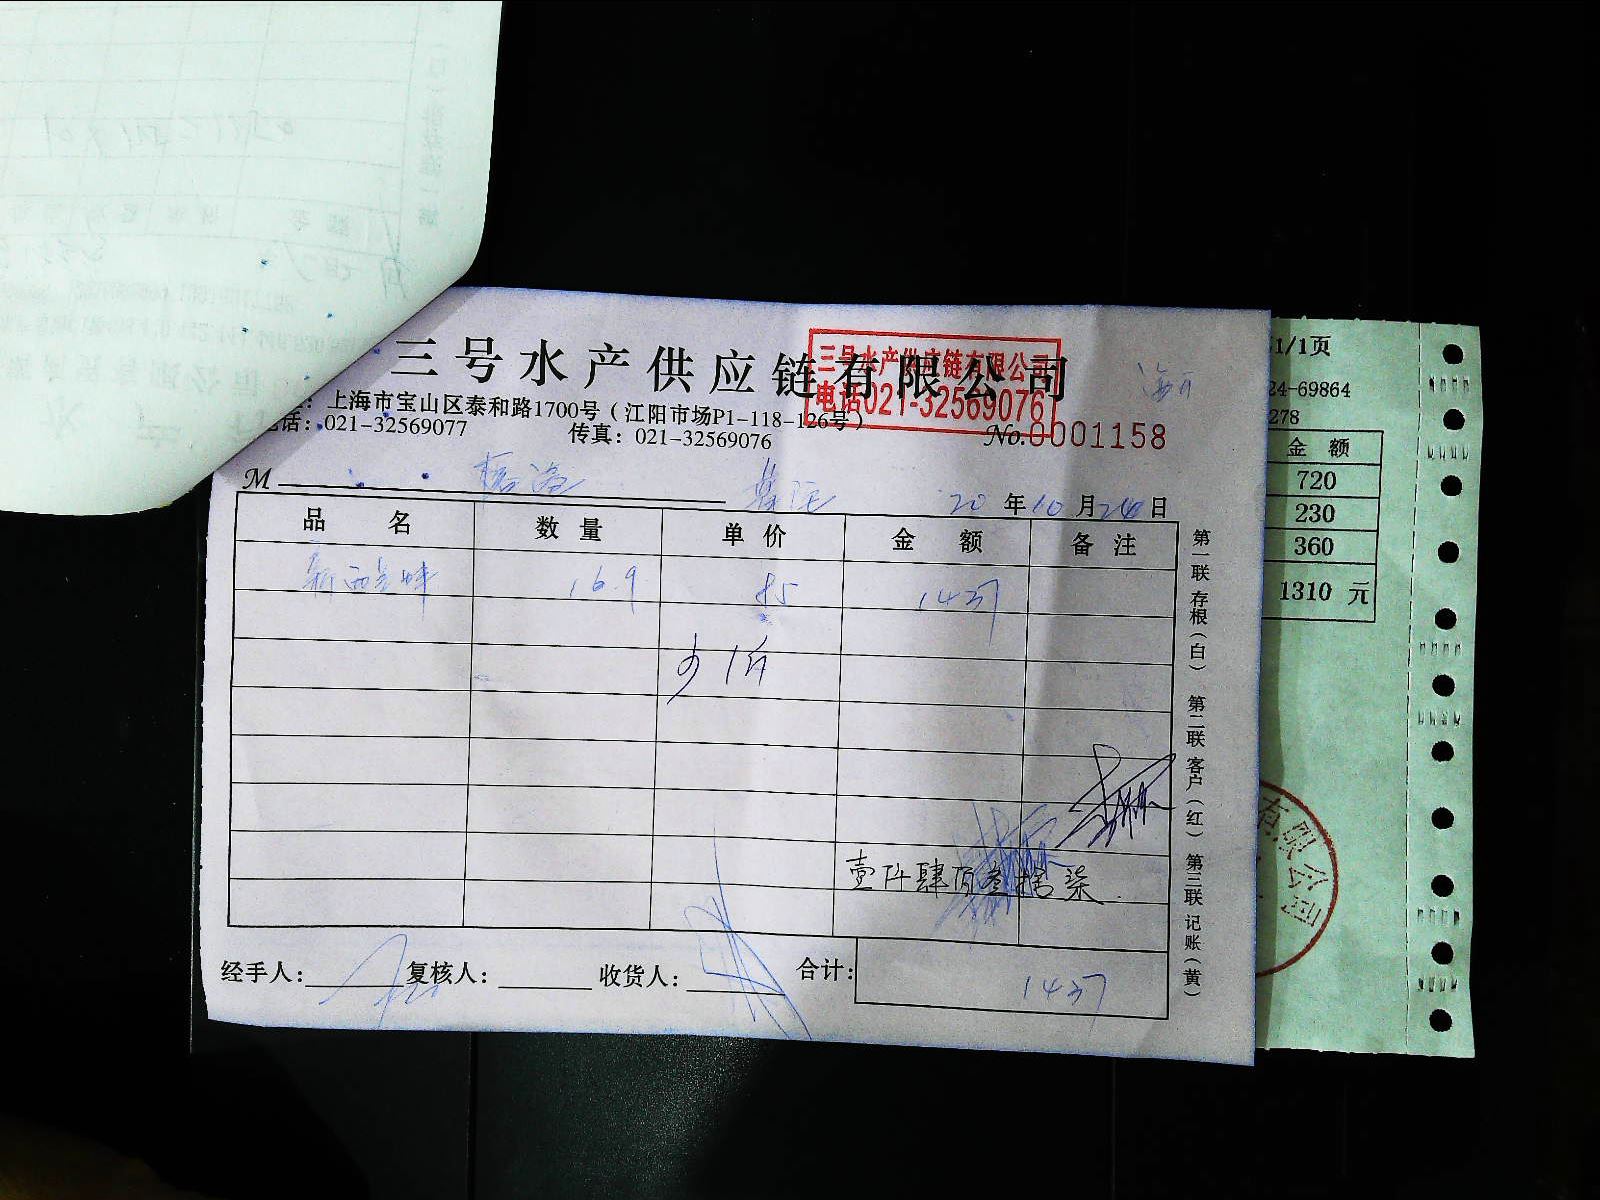 三号水产供应链有限公司
三号水产供应链有限公司
电话021-32569076
上海市宝山区泰和路1700号（江阳市场P1-118-126号）
话：021-32569077 传真：021-32569076 No.0001158
M 20 年 10 月 24 日
品 名 数 量 单 价 金 额 备 注
新西兰蚌 16.9 85 1437
少1斤
壹仟肆百叁拾柒
经手人： 复核人： 收货人： 合计： 1437
第一联 存根（白） 第二联 客户（红） 第三联 记账（黄）
1/1页
24-69864
278
金 额
720
230
360
1310 元
有限公司